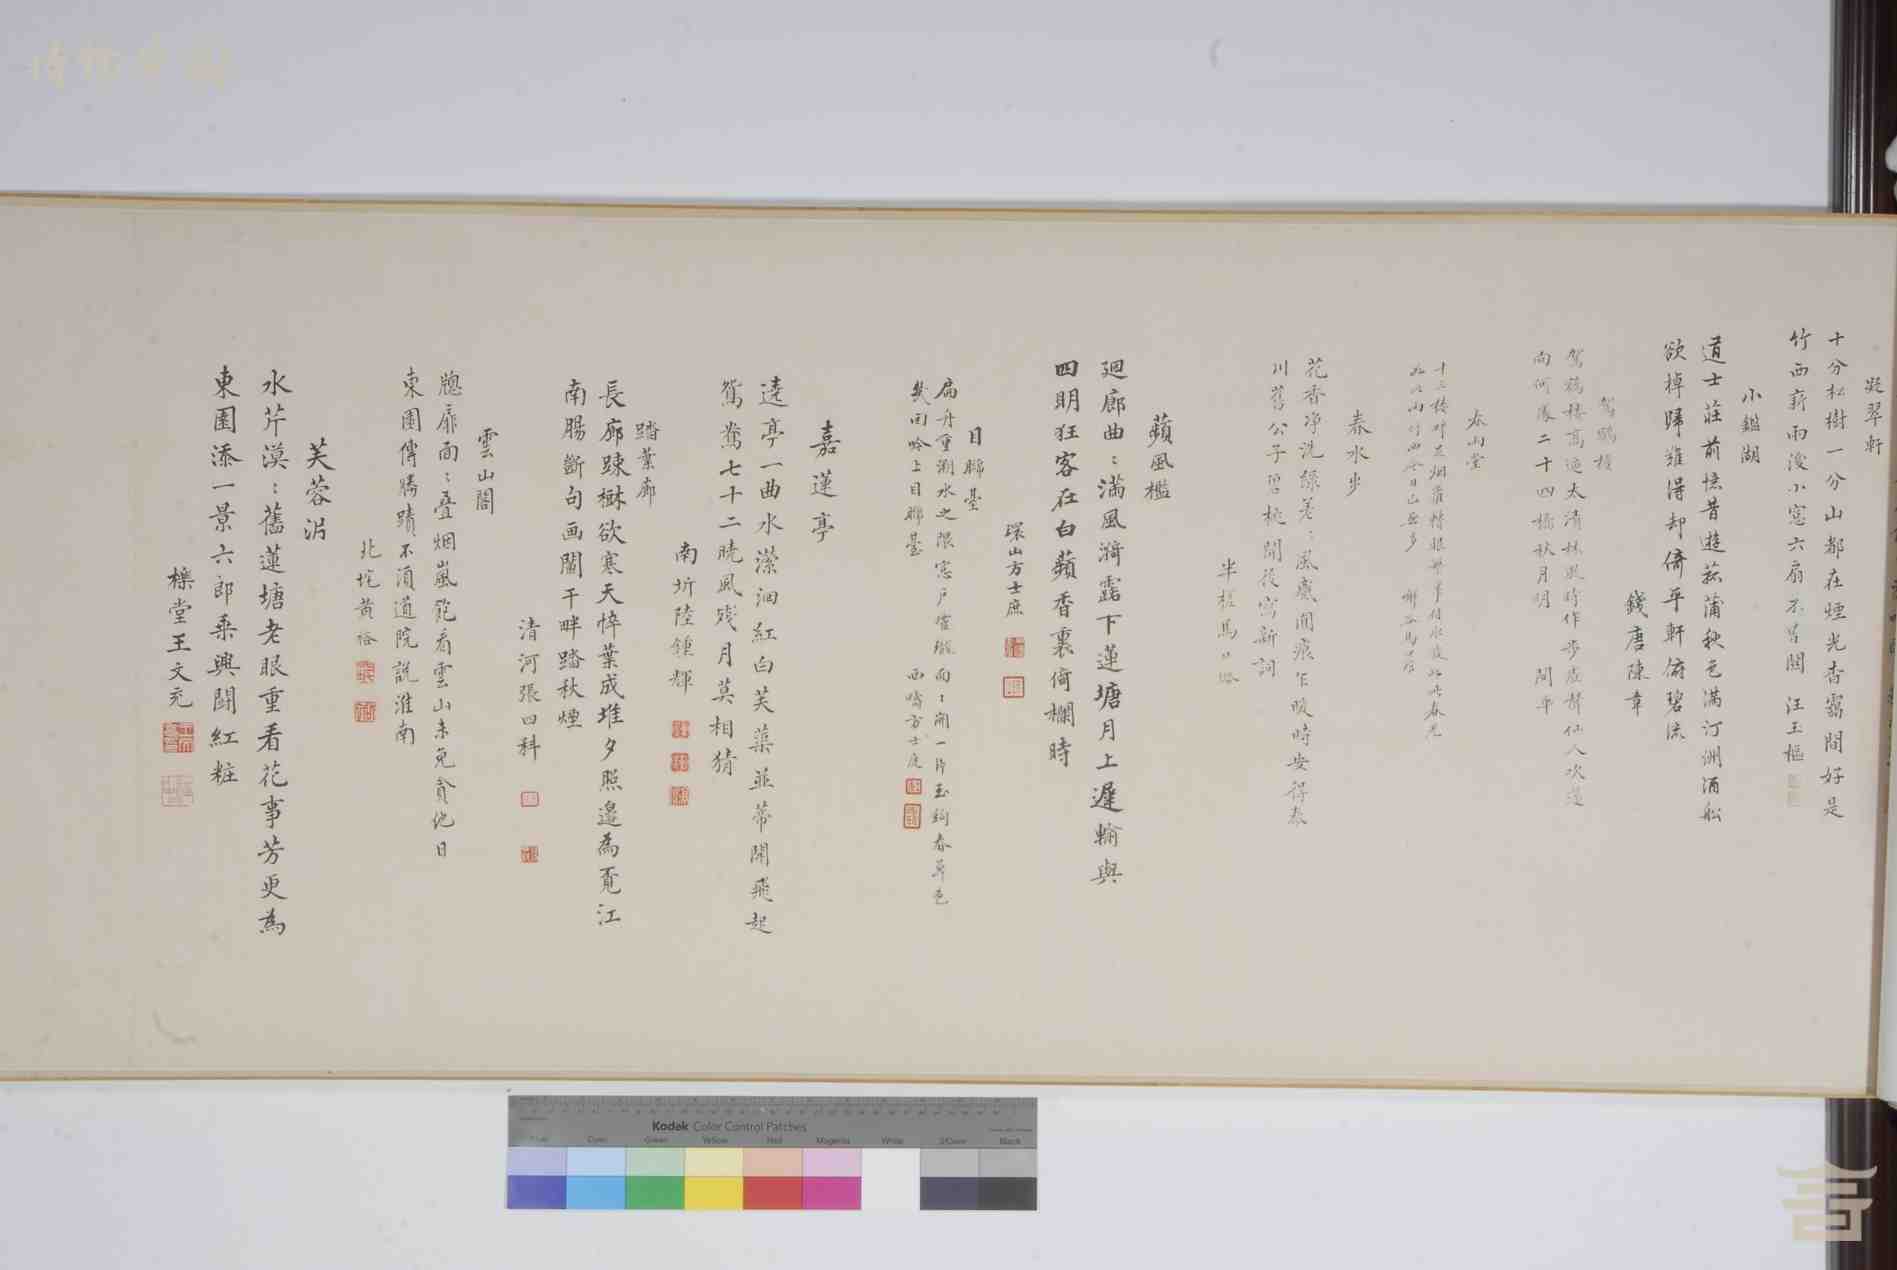 凝翠軒
十分松樹一分山都在煙光杳靄間好是
竹西薪雨後小窓六扇不曾關 汪玉樞
小鑑湖
道士莊前憶昔遊菰蒲秋色滿汀洲酒船
欲棹歸難得却倚平軒俯碧流
錢唐陳章
駕鶴樓
駕鶴樓高逼太清林風時作步虛聲仙人吹篴
向何處二十四橋秋月明 閔華
春雨堂
春水步
花香净洗綠差〻風蹙閒痕乍暖時安得泰
川舊公子碧桃開後寫新詞
半槎馬曰璐
蘋風檻
迴廊曲〻滿風漪露下蓮塘月上遲輸與
四明狂客在白蘋香裏倚欄時
環山方士庶
目聯臺
扁舟重溯水之隈窓戶玲瓏面〻開一片玉鉤春草色
幾回吟上目聯臺 西疇方士庹
嘉蓮亭
遶亭一曲水瀠洄紅白芙蕖並蒂開飛起
鴛鴦七十二曉風殘月莫相猜
南圻陸鍾輝
踏葉廊
長廊踈樾欲寒天悴葉成堆夕照邊為覓江
南腸斷句画闌干畔踏秋煙
清河張四科
雲山閣
牕扉面〻叠烟嵐飽看雲山未免貪他日
東園傳勝蹟不須道院説淮南
北垞黃裕
芙蓉沜
水芹漠〻舊蓮塘老眼重看花事芳更為
東園添一景六郎乘興鬪紅粧
櫟堂王文充
Kodak Color Control Patches
Blue Cyan Green Yellow Red Magenta White 3/Color Black